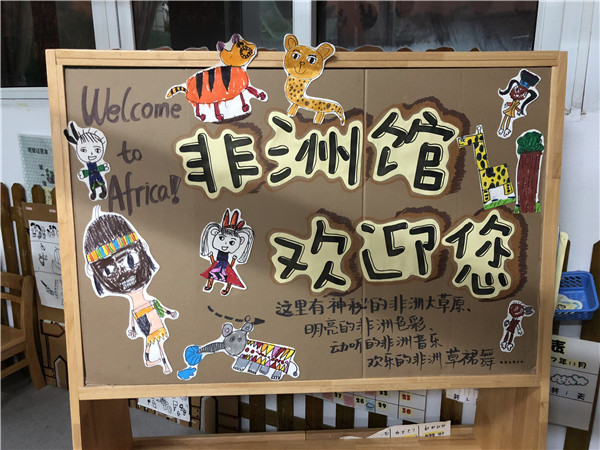 Welcome
to
Africa!
非洲馆
欢迎您
这里有神秘的非洲大草原、
明亮的非洲色彩、
动听的非洲音乐
欢乐的非洲草裙舞……